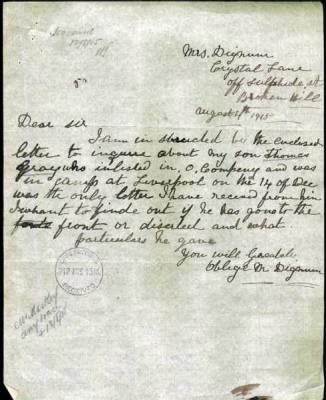 Mrs. Dignum
Crystal Lane
off Sulphide st
Broken Hill
August 4th 1915
Dear sir
I am in structed by the enclosed
letter to inquire about my son Thomas
Gray who inlisted in O. Company and was
in camp at Liverpool on the 14 of Dec
was the only letter I have receved from him
I whant to finde out if he has gone to the
front or diserted and what
particulars he gave
You will Greatly
Oblige M Dignum
RECEIVED